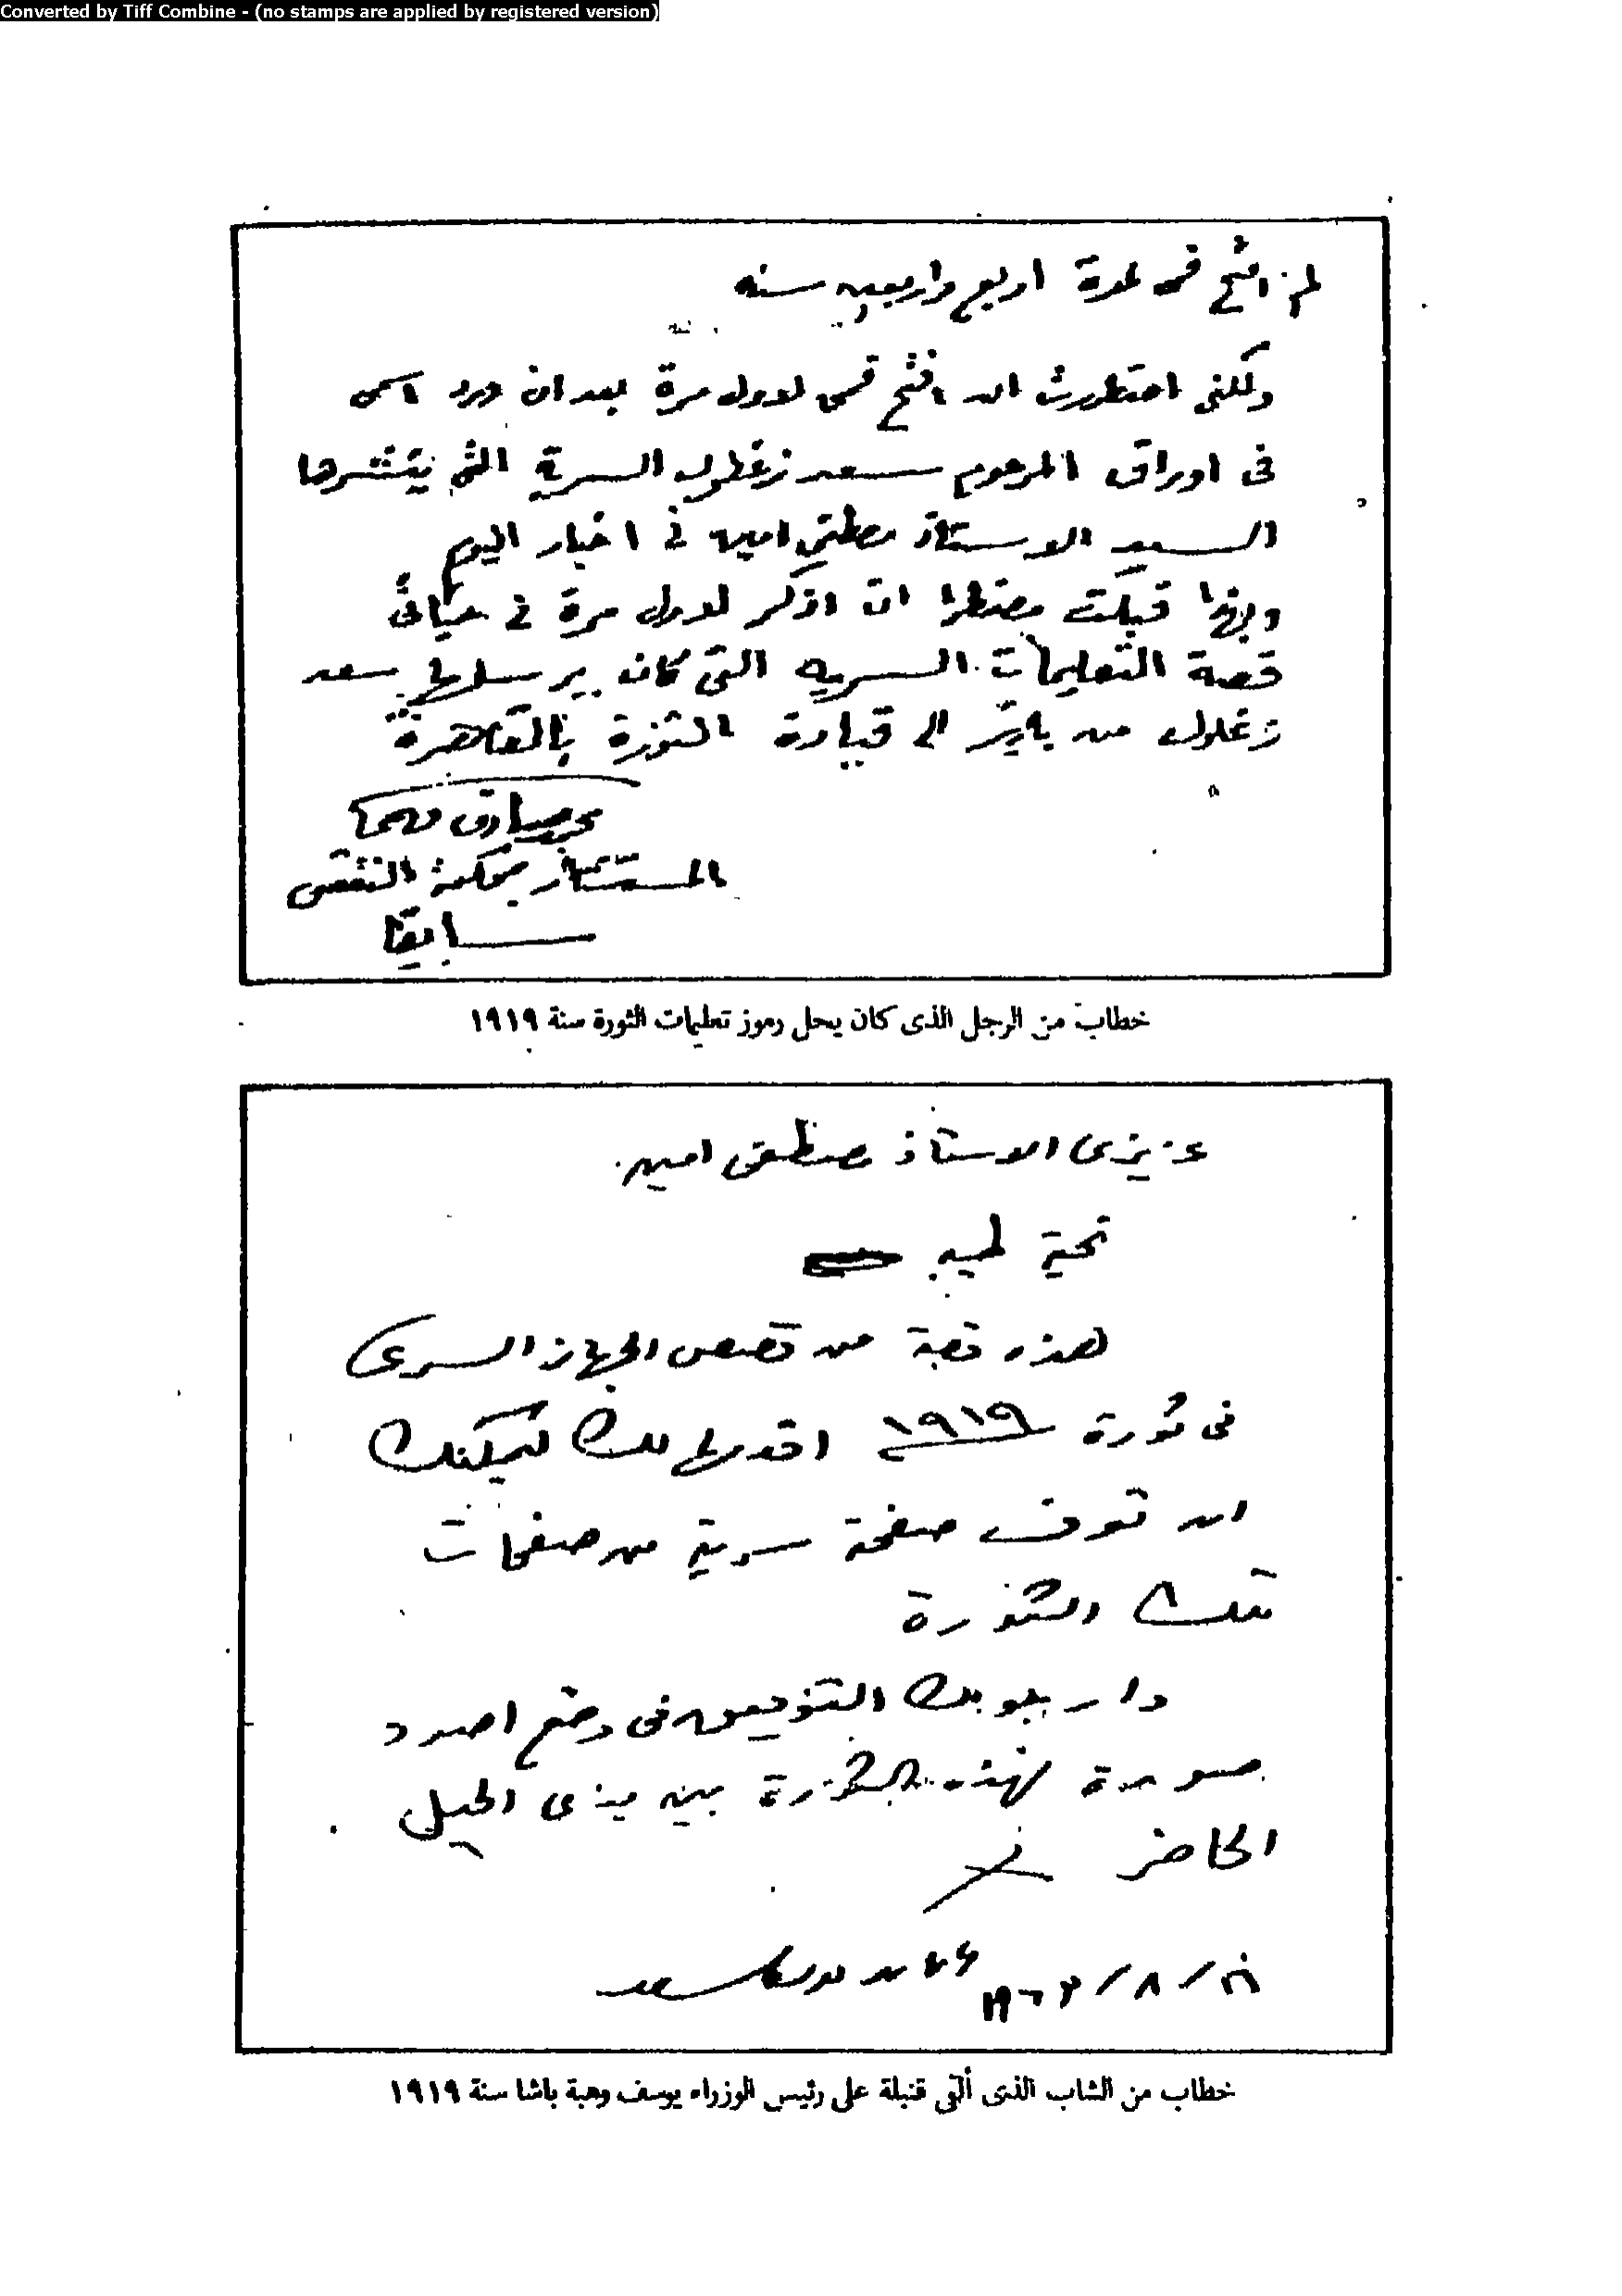 Converted by Tiff Combine - (no stamps are applied by registered version)
لم افتح فمى لمدة اربع واربعين سنه
ولكنى اضطررت ان افتح فمى لاول مرة بعد ان ورد اسمى
فى اوراق المرحوم سعد زغلول السرية التى ينشرها
السيد الاستاذ مصطفى امين فى اخبار اليوم
ولهذا قبلت مضطرا ان اذكر لاول مرة فى حياتى
قصة التعليمات السريه التى كان يرسلها سعد
زغلول من باريس الى قيادة الثورة بالقاهرة
صادق فهمى
المستشار بمحكمة النقض
سابقا
خطاب من الرجل الذى كان يحل رموز تعليمات الثورة سنة ١٩١٩
عزيزى الاستاذ مصطفى امين
تحية طيبه
هذه قصة من قصص الجهاز السرى
فى ثورة ١٩١٩ اقدمها لك ليمكنك
ان تعرف صفحة سرية من صفحات
تلك الثورة
وارجو لك التوفيق فى وضع اصدق
صورة لهذه الثورة بين يدى الجيل
الحاضر
عريان يوسف سعد
/٨/١٩٦٣
خطاب من الشاب الذى ألقى قنبلة على رئيس الوزراء يوسف وهبة باشا سنة ١٩١٩